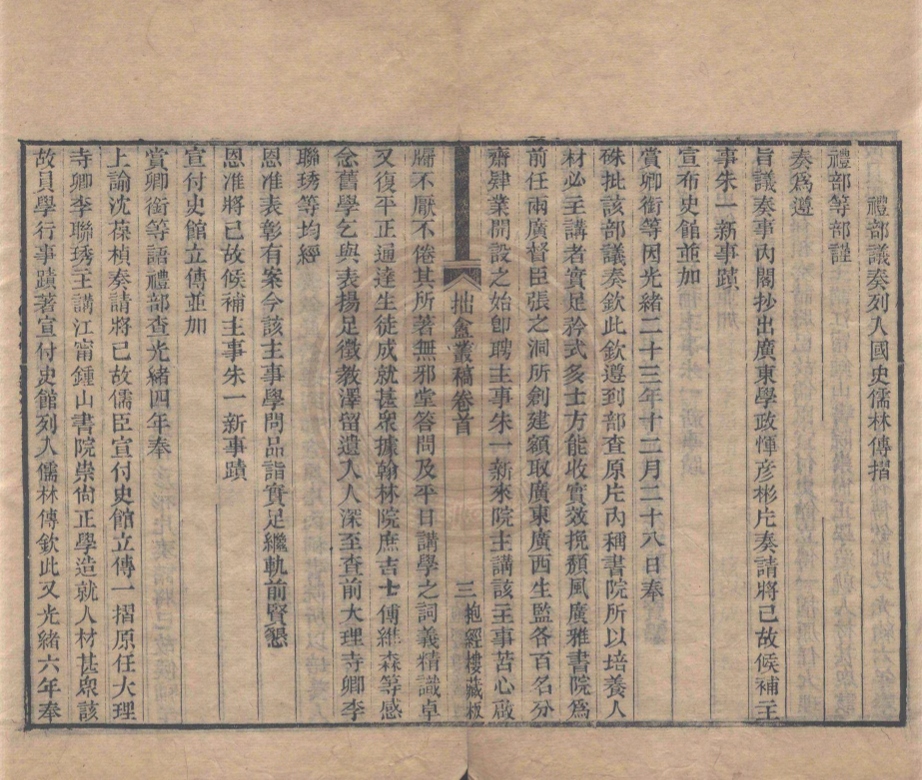 禮部議奏列入國史儒林傳摺
禮部等部謹
奏爲遵
旨議奏事內閣抄出廣東學政惲彦彬片奏請將已故候補主
事朱一新事蹟
宣布史館並加
賞卿銜等因光緒二十三年十二月二十八日奉
硃批該部議奏欽此欽遵到部查原片內稱書院所以培養人
材必主講者實足矜式多士方能收實效挽頽風廣雅書院爲
前任兩廣督臣張之洞所創建額取廣東廣西生監各百名分
齋肄業開設之始卽聘主事朱一新來院主講該主事苦心啟
拙盦叢稿卷首
三
抱經樓藏板
牖不厭不倦其所著無邪堂答問及平日講學之詞義精識卓
又復平正通達生徒成就甚衆據翰林院庶吉士傅維森等感
念舊學乞與表揚足徵教澤留遺入人深至查前大理寺卿李
聯琇等均經
恩准表彰有案今該主事學問品詣實足繼軌前賢懇
恩准將已故候補主事朱一新事蹟
宣付史館立傳並加
賞卿銜等語禮部查光緒四年奉
上諭沈葆楨奏請將已故儒臣宣付史館立傳一摺原任大理
寺卿李聯琇主講江甯鍾山書院崇尙正學造就人材甚衆該
故員學行事蹟著宣付史館列入儒林傳欽此又光緒六年奉